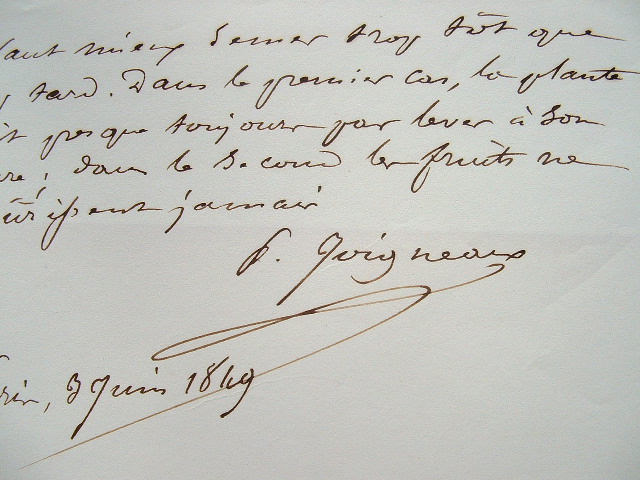 vaut mieux semer trop tôt que
p tard. Dans le premier cas, la plante
it presque toujours par lever à son
re; dans le second les fruits ne
ûrissent jamais
P. Joigneaux
ris, 3 Juin 1849